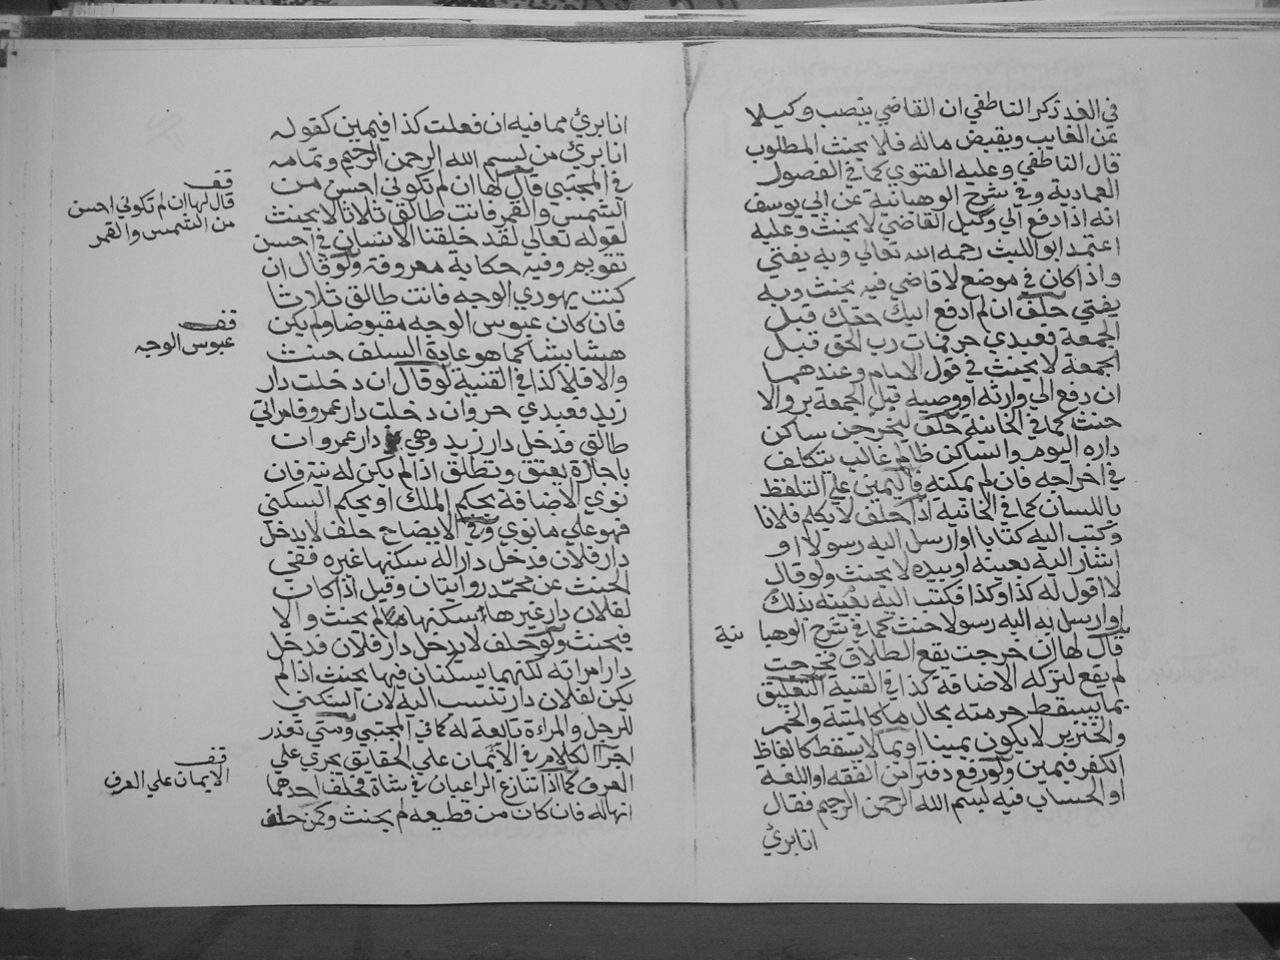 في الغد ذكر الناطفي ان القاضي ينصب وكيلا
عن الغايب ويقبض ماله فلا يحنث المطلوب
قال الناطفي وعليه الفتوي كما في الفصول
العمادية وفي شرح الوهبانية عن ابي يوسف
انه اذا دفع الي وكيل القاضي لا يحنث وعليه
اعتمد ابو الليث رحمه الله تعالي وبه يفتي
واذا كان في موضع لا قاضي فيه يحنث وبه
يفتي حلف ان لم ادفع اليك حقك قبل
الجمعة فعبدي حر فمات رب الحق قبل
الجمعة لا يحنث في قول الامام وعندهما
ان دفع الي وارثه او وصيه قبل الجمعة بر والا
حنث كما في الخانية حلف ليخرجن ساكن
داره اليوم والساكن ظالم غالب يتكلف
في اخراجه فان لم يمكنه فاليمين علي التلفظ
باللسان كما في الخانية اذا حلف لا يكلم فلانا
وكتب اليه كتابا او ارسل اليه رسولا او
اشار اليه بعينه او بيده لا يحنث ولو قال
لا اقول له كذا وكذا فكتب اليه بعينه بذلك
او ارسل به اليه رسولا حنث كما في شرح الوهبا نية
قال لها ان خرجت يقع الطلاق فخرجت
لم يقع لتركه الاضافة كذا في القنية التعليق
بما يسقط حرمته بحال ما كالميتة والخمر
والخنزير لا يكون يمينا او بما لا يسقط كالفاظ
الكفر فيمين ولو رفع دفتر ابن الفقه او اللغة
او الحساب فيه بسم الله الرحمن الرحيم فقال
انا بري
انا بري مما فيه ان فعلت كذا فيمين كقوله
انا بري من بسم الله الرحمن الرحيم وتمامه
في المجتبي قال لها ان لم تكوني احسن من
الشمس والقمر فانت طالق ثلاثا لا يحنث
لقوله تعالي لقد خلقنا الانسان في احسن
تقويم وفيه حكاية معروفة ولو قال ان
كنت يهودي الوجه فانت طالق ثلاثا
فان كان عبوس الوجه مقبوضا ولم يكن
هشا بشا كما هو عاية السلف حنث
والا فلا كذا في القنية لو قال ان دخلت دار
زيد فعبدي حر وان دخلت دار عمرو فامراتي
طالق فدخل دار زيد وهي دار عمرو ات
باجارة يعتق وتطلق اذا لم يكن له نية فان
نوي الاضافة بحكم الملك او بحكم السكني
فهو علي ما نوي وفي الايضاح حلف لا يدخل
دار فلان فدخل دارا له سكنها غيره ففي
الحنث عن محمد روايتان وقيل اذا كان
لفلان دار غيرها سكنها لم يحنث والا
فيحنث ولو حلف لا يدخل دار فلان فدخل
دار امراته لكنهما يسكنان فيها يحنث اذا لم
يكن لفلان دار تنسب اليه لان السكني
للرجل والمراءة تابعة له كما في المجتبي ومتي تعذر
اخر الكلام في الايمان علي الحقايق يجري علي
العرف كما اذا تنازع الراعيان في شاة فحلف احدهما
انها له فان كان من قطيعه لم يحنث وكمن حلف
قف
قال لها ان لم تكوني احسن
من الشمس والقمر
قف
عبوس الوجه
قف
الايمان علي العرف